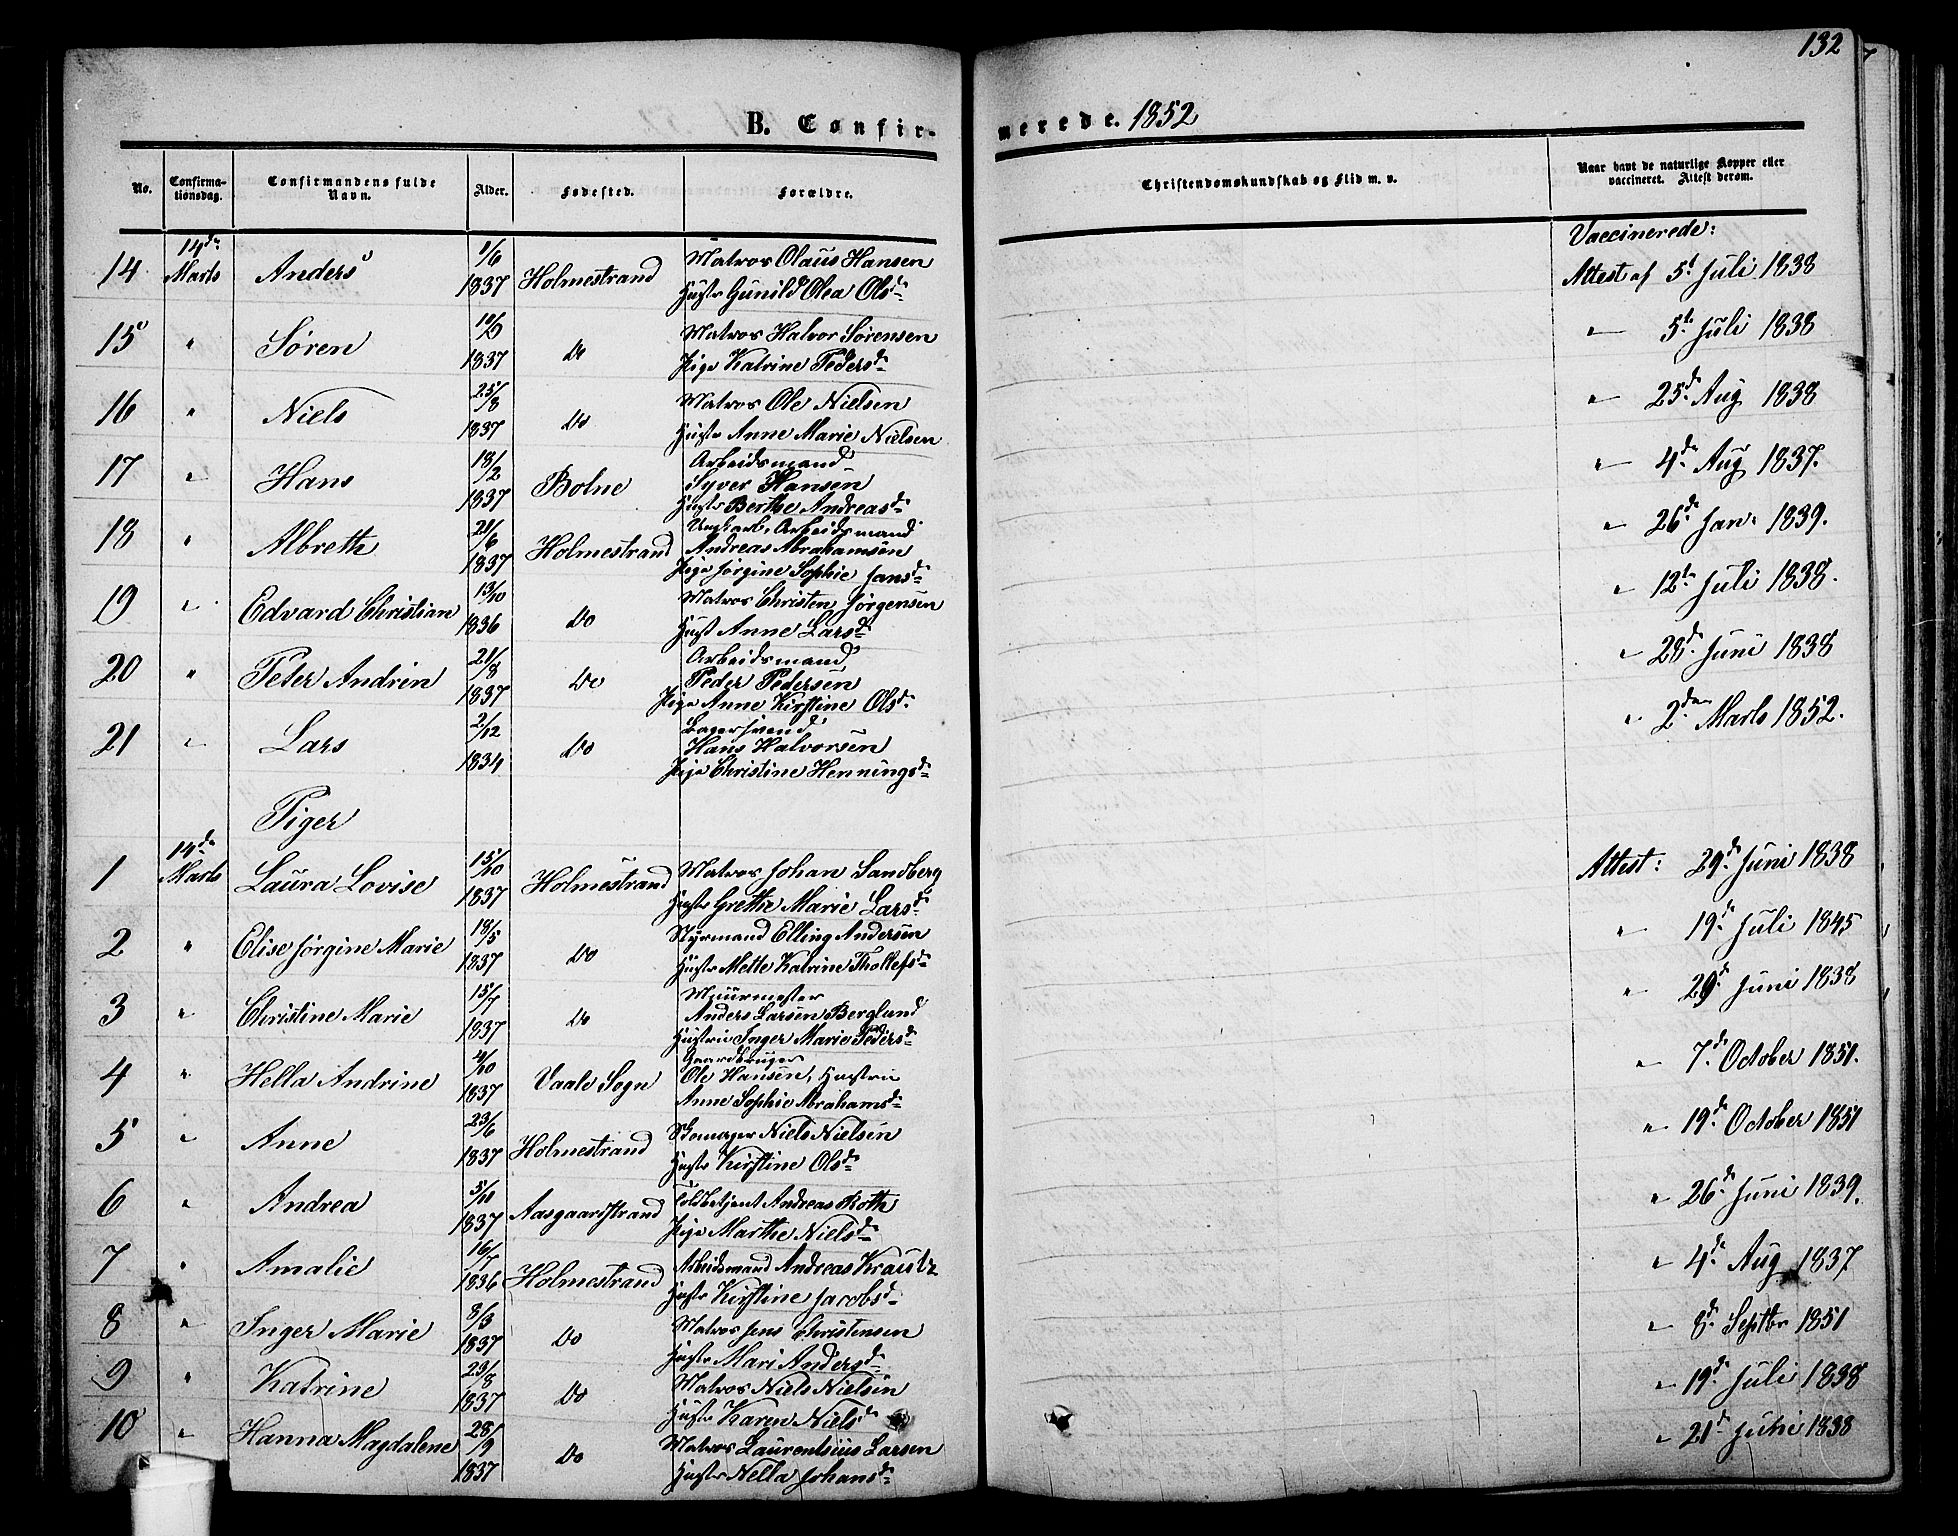 132
B. Confirmerede. 1852
No. Confirmationsdag. Confirmandens fulde Navn. Alder. Fødested. Forældre. Christendomskundskab og Flid m. v. Naar havt de naturlige Kopper eller vaccineret. Attest derom.
Vaccinerede:
14 14de Marts Anders 1/6 1837 Holmestrand Matros Olaus Hansen Attest af 5t Juli 1838
Hustr Gunild Olea Olsdr
15 " Søren 1837 Do Matros Halvor Sørensen " 5te Juli 1838
Pige Katrine Pedersdr
16 " Niels 25/8 1837 Do Matros Ole Nielsen " 25de Aug 1838
Hustr Anne Marie Nielsen
17 " Hans 18/2 1837 Botne Arbeidsmand " 4de Aug 1837.
Syver Hansen
Hustr Berthe Andreasdr
18 " Albreth 21/6 1837 Holmestrand Ungkarl, Arbeidsmand " 26de Jan. 1839.
Andreas Abrahamsen
Pige Jørgine Sophie Jansdr
19 " Edvard Christian 13/10 1836 Do Matros Christen Jørgensen " 12te Juli 1838.
Hust Anne Larsdr
20 " Peter Andrin 21/8 1837 Do Arbeidsmand " 28de Juni 1838
Peder Pedersen
Pige Anne Kirstine Olsdr
21 " Lars 2/12 1834 Do Bagersvend " 2den Marts 1852.
Hans Halvorsen
Pige Christine Henningsdr
Piger
1 14de Marts Laura Lovise 15/10 1837 Holmestrand Matros Johan Sandberg Attest: 29de Juni 1838
Hustr Grethe Marie Larsdr
2 " Elise Jørgine Marie 18/5 1837 Do Styrmand Elling Andersen " 19de Juli 1845
Hustr Mette Katrine Thollefsdr
3 " Christine Marie 15/7 1837 Do Muurmester " 29de Juni 1838
Anders Larsen Berglund
Hustru Inger Marie Pedersdr
4 " Hella Andrine 4/10 1837 Vaale Sogn Gaardbruger " 7de October 1851.
Ole Hansen, Hustru
Anne Sophie Abrahamsdr
5 " Anne 23/6 1837 Holmestrand Skomager Niels Nielsen " 19de October 1851
Hustr Kirstine Olsdr
6 " Andrea 5/10 1837 Aasgaardstrand Toldbetjent Andreas Roth " 26de Juni 1839.
Pige Marthe Nielsdr
7 " Amalie 16/7 1836 Holmestrand Arbeidsmand Andreas Krautz " 4de Aug 1837
Hustr Kirstine Jacobsdr
8 " Inger Marie 8/3 1837 Do Matros Jens Christensen " 8de Septbr 1851
Hustr Mari Andersdr
9 " Katrine 23/8 1837 Do Matros Niels Nielsen " 19de Juli 1838
Hustr Karen Nielsdr
10 " Hanna Magdalene 28/9 1837 Do Matros Laurentsius Larsen " 21de 1838
Hustr Nella Johansdr